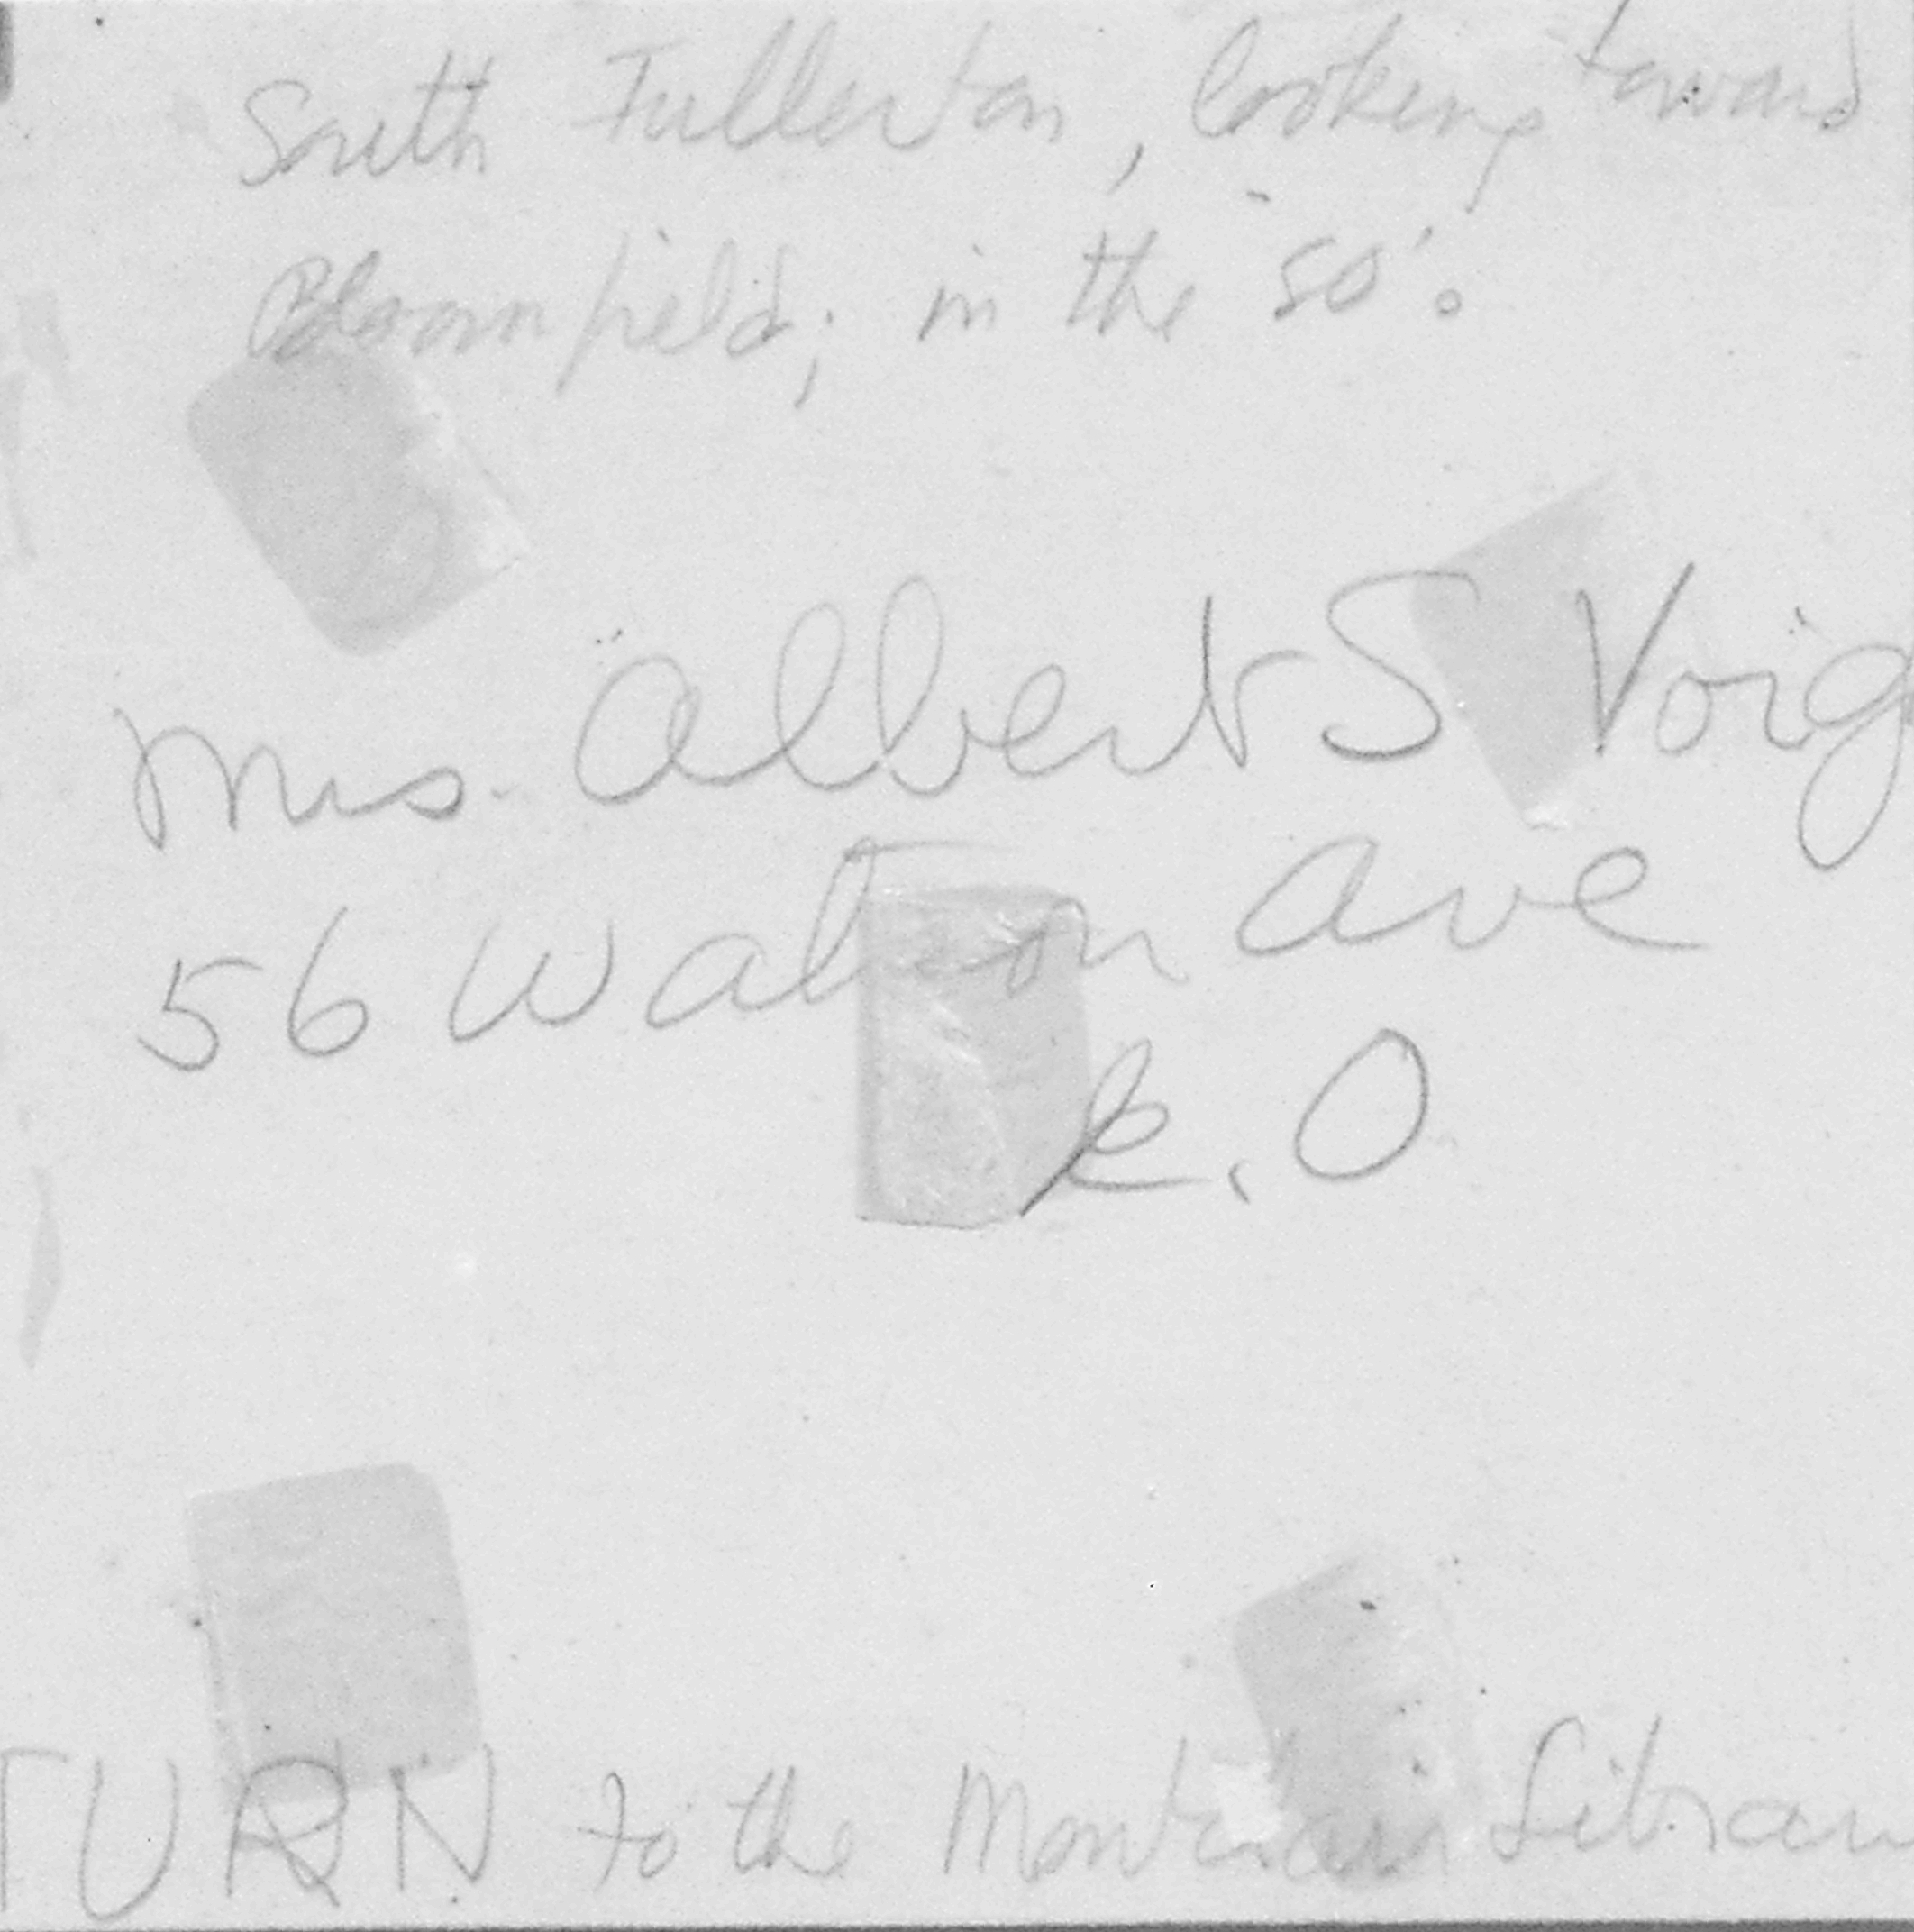 South Fullerton, looking toward
Bloomfield; in the 50's.
Mrs. Albert S Voig
56 Watson Ave
E. O
TURN to the Montclair Librar